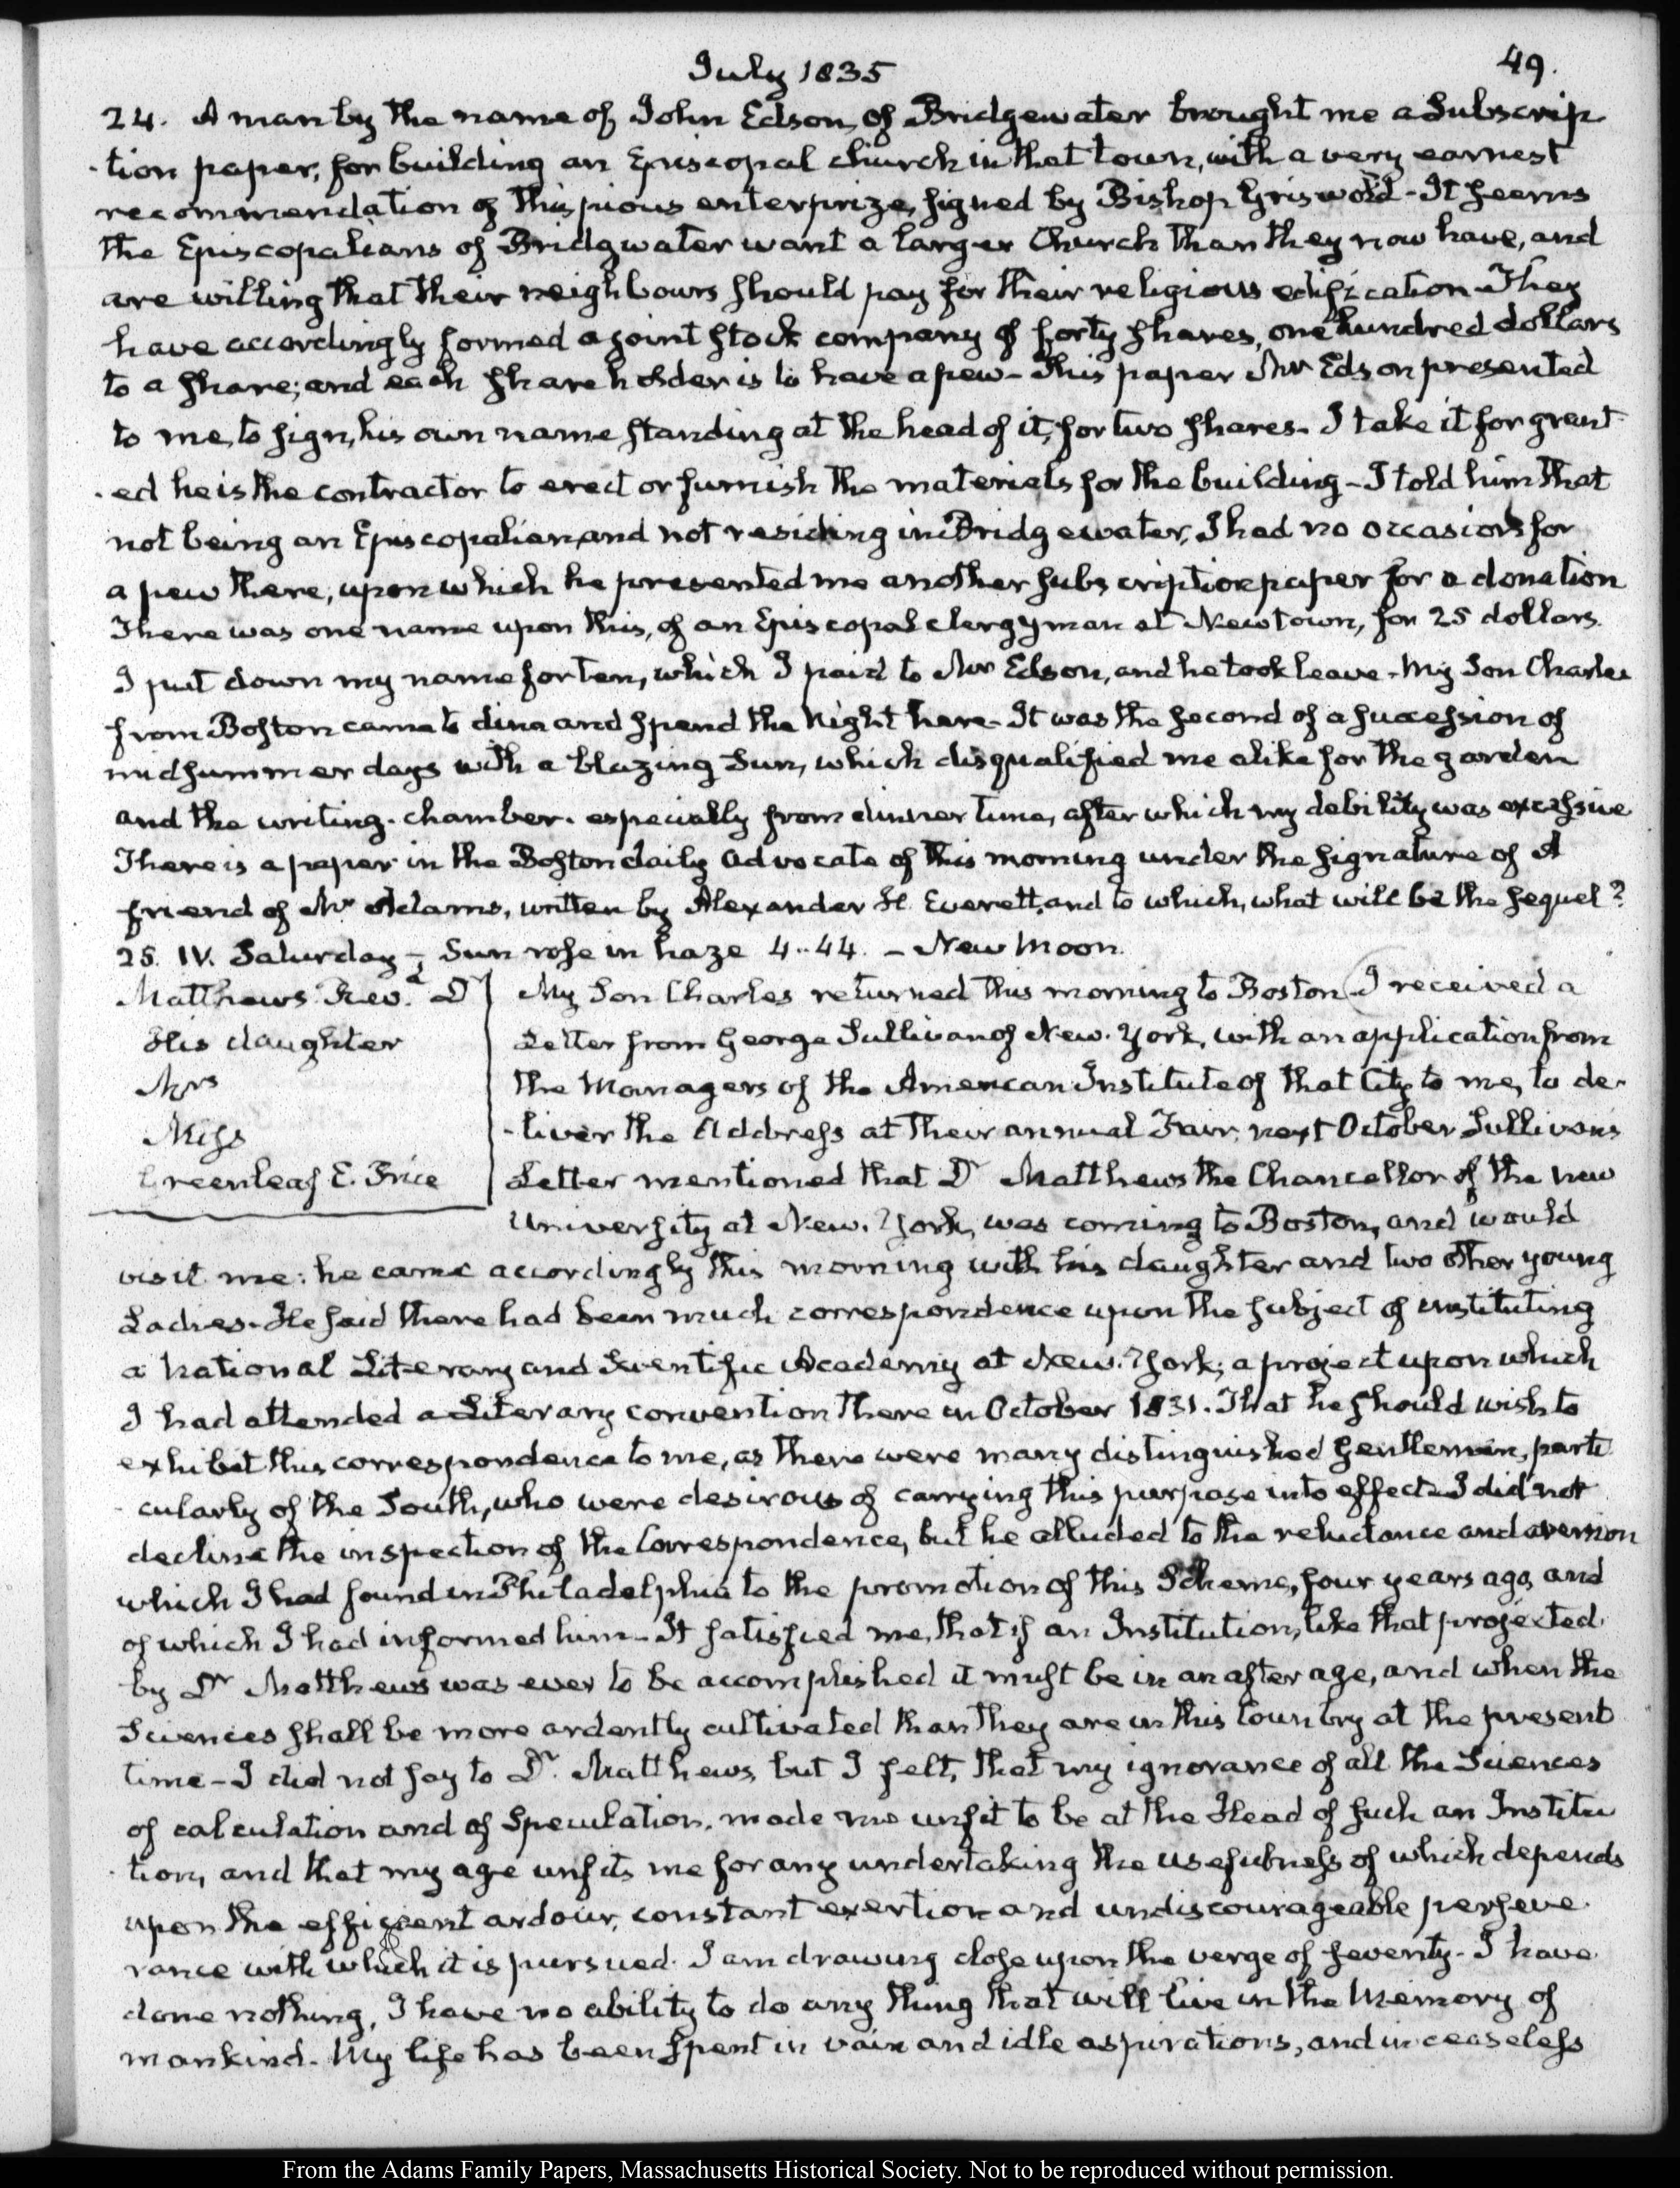 July 1835
49.
24. A man by the name of John Edson, of Bridgewater brought me a Subscrip
-tion paper, for building an Episcopal church in that town, with a very earnest
recommendation of this pious enterprize, signed by Bishop Griswold - It seems
the Episcopalians of Bridgwater want a larger Church than they now have, and
are willing that their neighbours should pay for their religious edification - They
have accordingly formed a joint stock company of forty shares, one hundred dollars
to a share; and each shareholder is to have a pew - This paper Mr Edson presented
to me, to sign, his own name standing at the head of it, for two shares - I take it for grant
-ed he is the contractor to erect or furnish the materials for the building - I told him that
not being an Episcopalian, and not residing in Bridgewater, I had no occasion for
a pew there, upon which he presented me another subscription paper for a donation
There was one name upon this, of an Episcopal clergyman at Newtown, for 25 dollars.
I put down my name for ten, which I paid to Mr Edson, and he took leave - My Son Charles
from Boston came to dine and spend the Night here - It was the second of a succession of
midsummer days with a blazing Sun, which disqualified me alike for the garden
and the writing-chamber. especially from dinner time, after which my debility was excessive
There is a paper in the Boston daily Advocate of this morning under the signature of A
friend of Mr Adams, written by Alexander H. Everett, and to which, what will be the sequel?
25. IV. Saturday - Sun rose in haze 4..44. - New Moon.
Matthews Revd. Dr
His daughter
Mrs
Miss
Greenleaf E. Price
My Son Charles returned this morning to Boston (I received a
Letter from George Sullivan of New-York, with an application from
the Managers of the American Institute of that City to me, to de-
-liver the Address at their annual Fair, next October Sullivan's
Letter mentioned that Dr Matthews the Chancellor of the new
University at New-York, was coming to Boston, and would
visit me: he came accordingly this morning with his daughter and two other young
Ladies. He said there had been much correspondence upon the subject of instituting
a National Literary and Scientific Academy at New-York; a project upon which
I had attended a Literary convention there in October 1831. That he should wish to
exhibit this correspondence to me, as there were many distinguished Gentlemen, parti
-cularly of the South, who were desirous of carrying this purpose into effect - I did not
decline the inspection of the Correspondence, but he alluded to the reluctance and aversion
which I had found in Philadelphia to the promotion of this Scheme, four years ago, and
of which I had informed him - It satisfied me, that if an Institution, like that projected
by Dr Matthews was ever to be accomplished it must be in an after age, and when the
Sciences shall be more ardently cultivated than they are in this Country at the present
time - I did not say to Dr. Matthews, but I felt, that my ignorance of all the Sciences
of calculation and of Speculation, made me unfit to be at the Head of such an Institu
-tion, and that my age unfits me for any undertaking the usefulness of which depends
upon the efficient ardour, constant exertion and undiscourageable perseve
rance with which it is pursued. I am drawing close upon the verge of seventy - I have
done nothing, I have no ability to do any thing that will live in the Memory of
mankind. My life has been spent in vain and idle aspirations, and in ceaseless
From the Adams Family Papers, Massachusetts Historical Society. Not to be reproduced without permission.